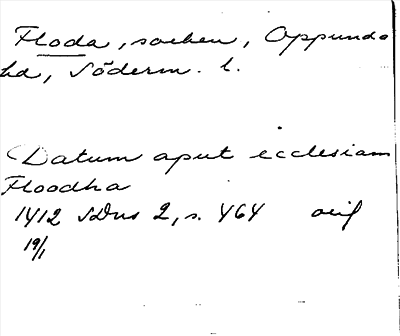 Floda, socken, Oppunda
hd, Söderm. l.
Datum aput ecclesiam
Floodha
1412 SDns 2, s. 464 orig
19/1